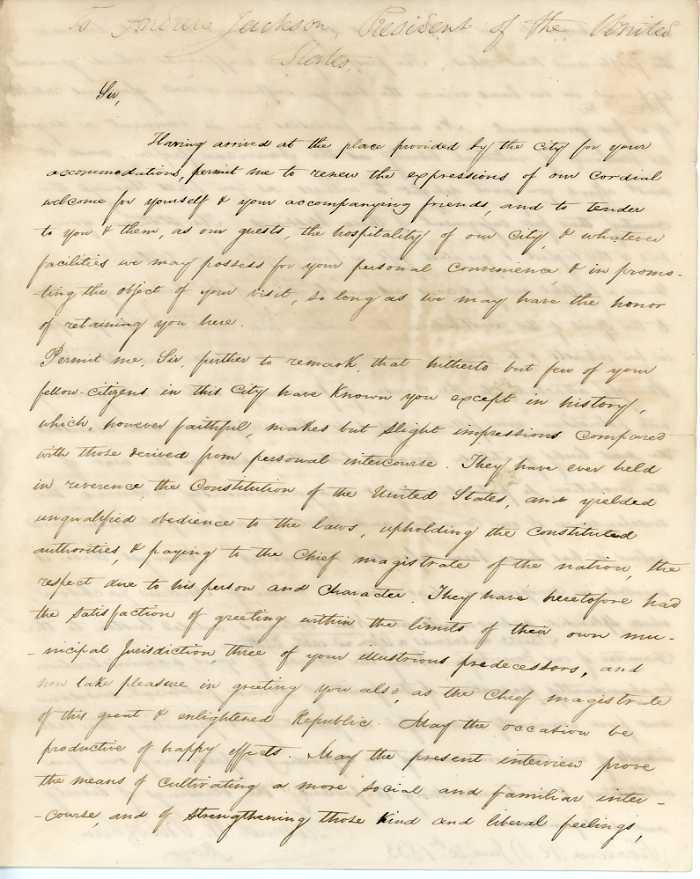 To Andrew Jackson, President of the United
States.
Sir,
Having arrived at the place provided by the City for your
accommodations, permit me to renew the expressions of our Cordial
welcome for yourself & your accompanying friends, and to tender
to you & them, as our guests, the hospitality of our City, & whatever
facilities we may possess for your personal Convenience, & in promo-
-ting the object of your visit, so long as we may have the honor
of retaining you here.
Permit me, Sir, further to remark, that hitherto but few of your
fellow-citizens in this City have Known you except in history,
which, however faithful, makes but slight impressions compared
with those derived from personal intercourse. They have ever held
in reverence the Constitution of the United States, and yielded
unqualified obedience to the laws, upholding the Constituted
authorities, & paying to the Chief magistrate of the nation, the
respect due to his person and Character. They have heretofore had
the satisfaction of greeting within the limits of their own mu-
-nicipal Jurisdiction, three of your illustrious predecessors, and
now take pleasure in greeting you also, as the Chief magistrate
of this great & enlightened Republic. May the occasion be
productive of happy effects. May the present interview prove
the means of Cultivating a more social and familiar inter-
-course, and of Strengthening those Kind and liberal feelings,